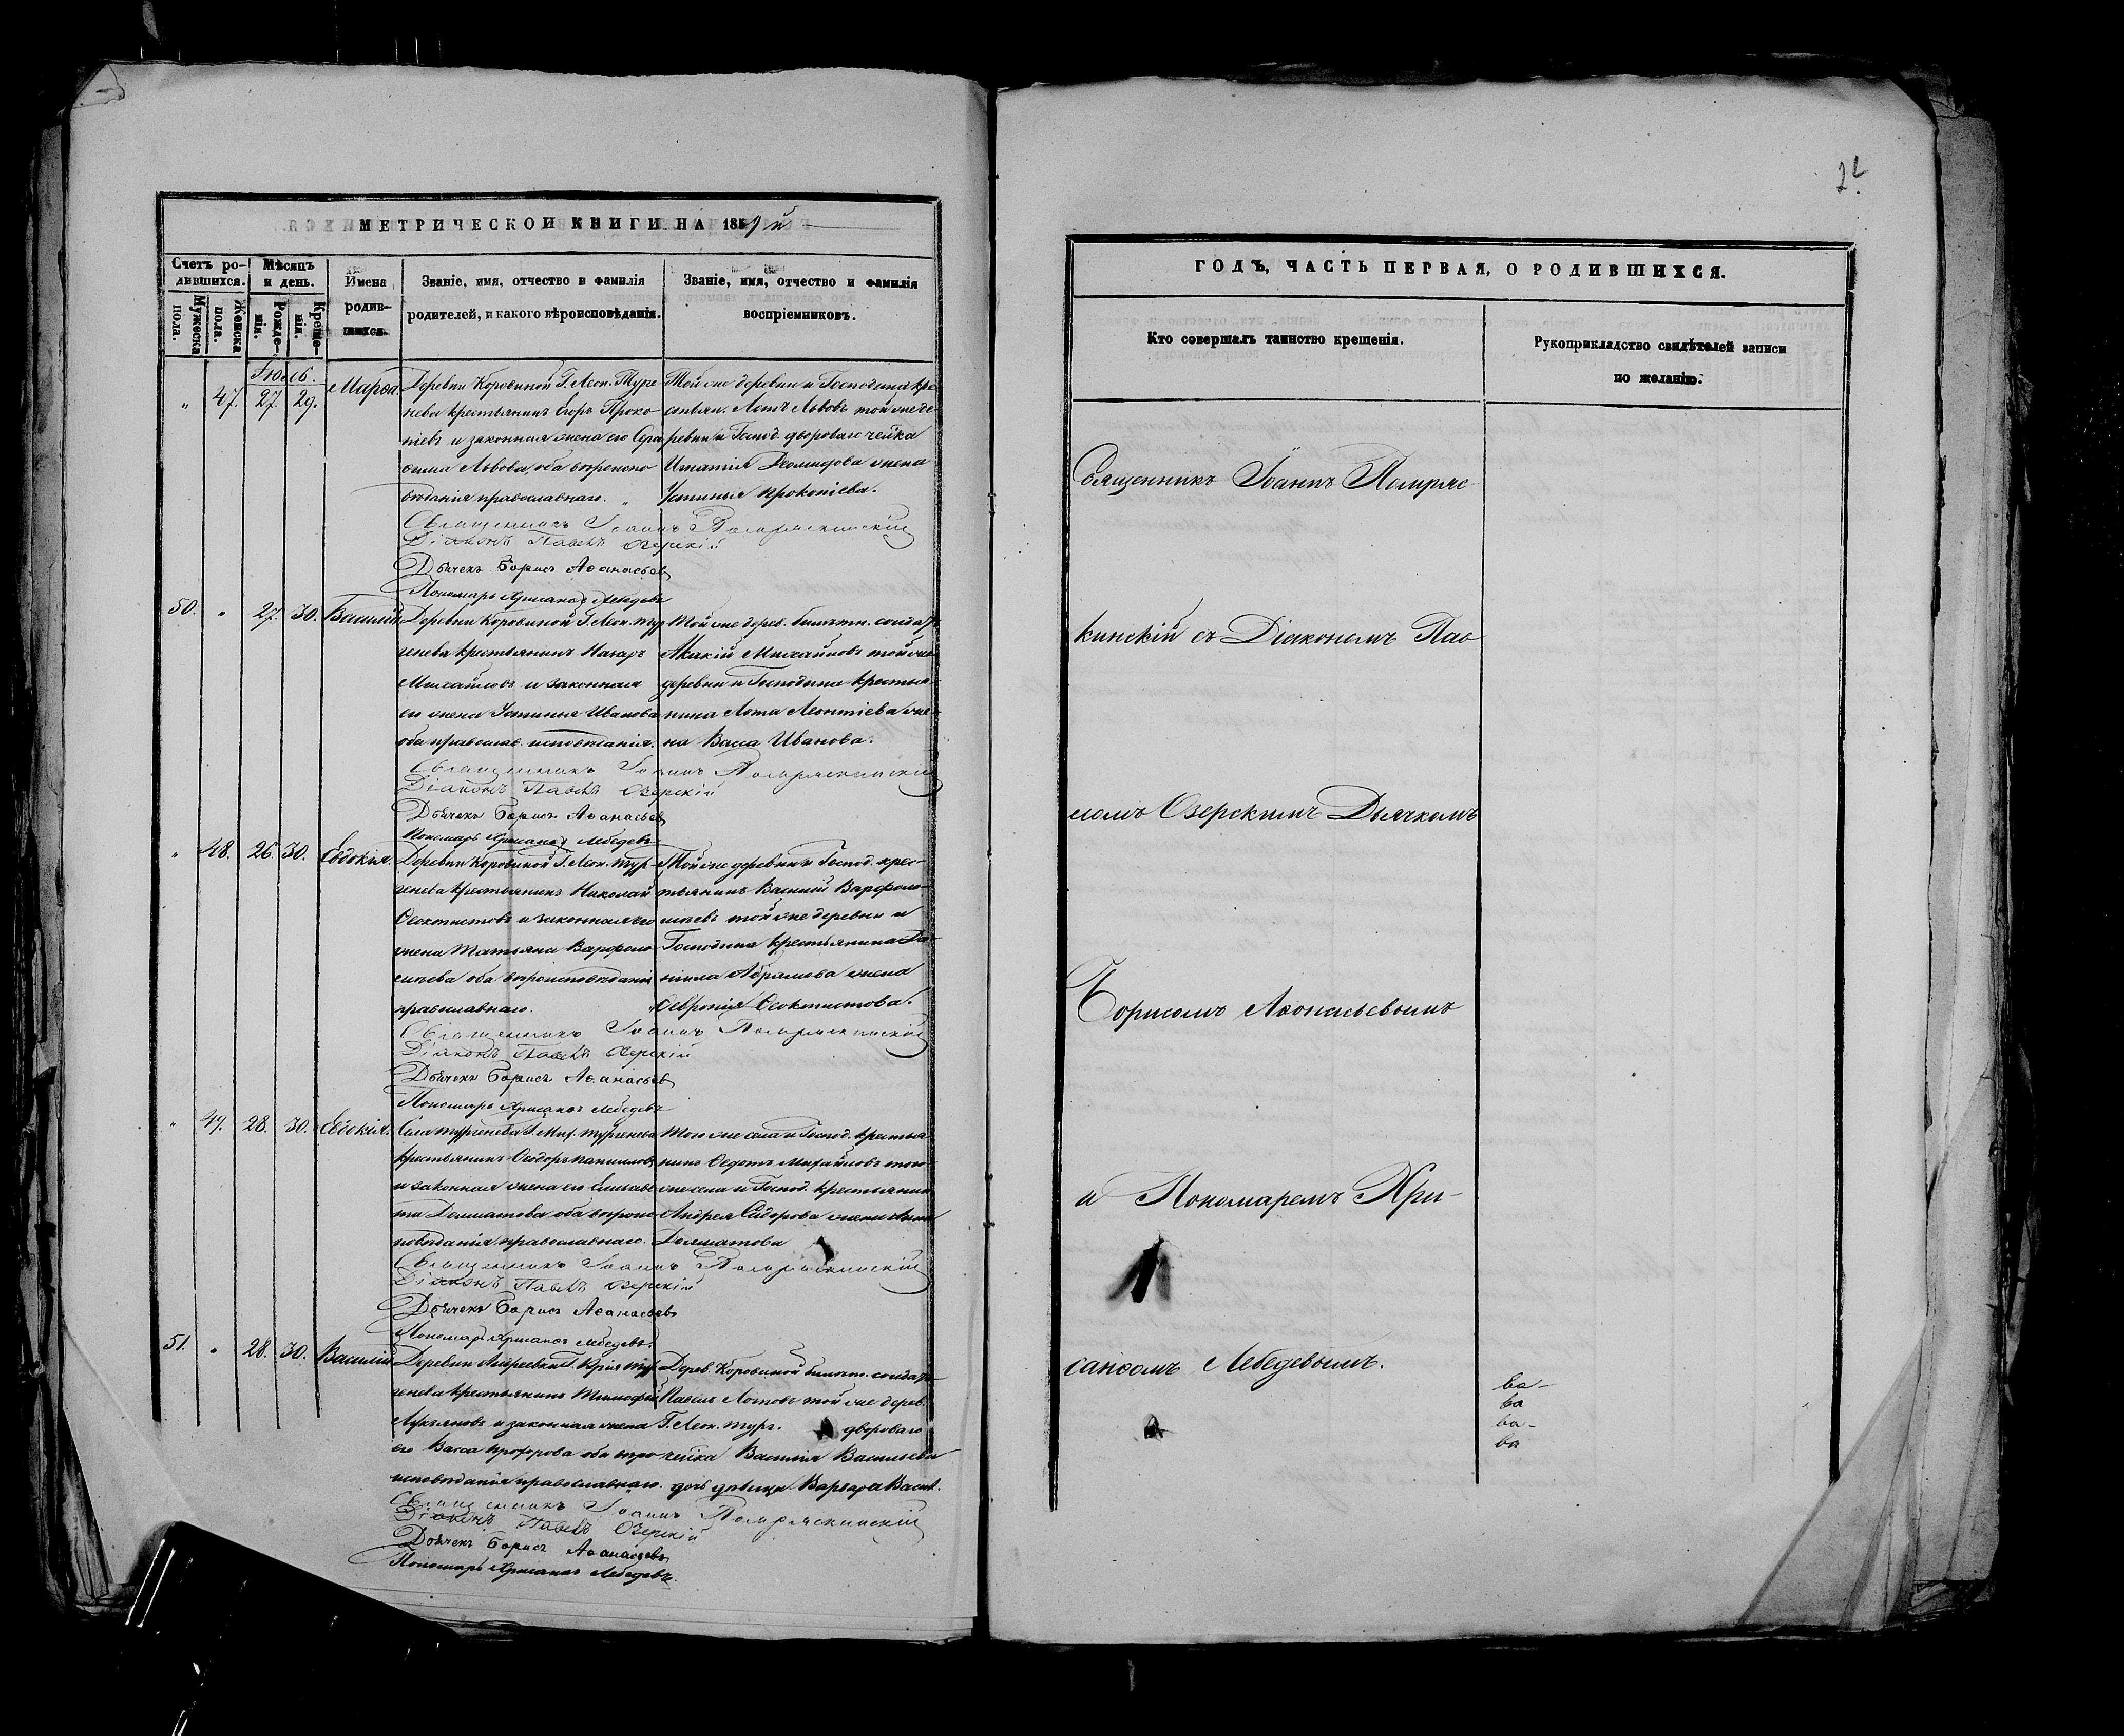 МЕТРИЧЕСКОЙ КНИГИ НА 1859й
Счетъ ро-
дившихся.
Мужеска
пола.
Женска
пола.
Мѣсяцъ
и день.
Рожде-
нія.
Креще-
нія.
Имена
родив-
шихся.
Званіе, имя, отчество и фамилія
родителей, и какого вѣроисповѣданія.
Званіе, имя, отчество и фамилія
воспріемниковъ.
" 47. 27. 29. Марѳа.
Деревни Коровиной Г. Леон. Турге
нева крестьянинъ Егоръ Проко-
піевъ и законная жена его Сера
фима Львова, оба вѣроиспо
вѣданія православнаго.
Той же деревни и Господина кре
стьян. Лотъ Львовъ той же де
ревни и Господ. дворового чел-ка
Игнатія Деомидова жена
Устинья Прокопіева.
Священникъ Іоаннъ Помряскинскій
Діаконъ Павелъ Озерскій
Дьячекъ Борисъ Аѳанасьевъ
Пономарь Хрисанѳъ Лебедевъ
50. " 27. 30. Василій
Деревни Коровиной Г. Леон. Тур
генева крестьянинъ Назаръ
Михайловъ и законная
его жена Устинья Иванова
оба православ. исповѣданія.
Той же дерев. билетн. солдатъ
Акакій Михайловъ той же
деревни и Господина крестья-
нина Лота Леонтіева же-
на Васса Иванова.
Священникъ Іоаннъ Помряскинскій
Діаконъ Павелъ Озерскій
Дьячекъ Борисъ Аѳанасьевъ
Пономарь Хрисанѳъ Лебедевъ
" 48. 26. 30. Евдокія.
Деревни Коровиной Г. Леон. Тур-
генева крестьянинъ Николай
Ѳеоктистовъ и законная его
жена Татьяна Варѳоло-
меева оба вѣроисповѣданія
православнаго.
Той же деревни и Господ. крес-
тьянинъ Василій Варѳоло-
меевъ той же деревни и
Господина крестьянина Да-
ніила Абрамова жена
Ѳевронія Ѳеоктистова.
Священникъ Іоаннъ Помряскинскій
Діаконъ Павелъ Озерскій
Дьячекъ Борисъ Аѳанасьевъ
Пономарь Хрисанѳъ Лебедевъ
" 49. 28. 30. Евдокія.
Села Тургенева Г. Мих. Тургенева
крестьянинъ Ѳеодоръ
и законная жена его Елисаве
та Долматова оба вѣроис
повѣданія православнаго.
Того же села и Господ. крестья
нинъ Ѳедотъ Михайловъ того
же села и Господ. крестьянина
Андрея Сидорова жена Анна
Долматова
Священникъ Іоаннъ Помряскинскій
Діаконъ Павелъ Озерскій
Дьячекъ Борисъ Аѳанасьевъ
Пономарь Хрисанѳъ Лебедевъ.
51. " 28. 30. Василій
Деревни Андреевки Г. Юрія Тур
генева крестьянинъ Тимофей
Лукьяновъ и законная жена
его Васса Прохорова оба вѣро
исповѣданія православнаго.
Дерев. Коровиной билетн. солдатъ
Павелъ Лотовъ той же дерев.
Г. Леон. Тург. дворового
чел-ка Василія Васильева
дочь дѣвица Варвара Васил.
Священникъ Іоаннъ Помряскинскій
Діаконъ Павелъ Озерскій
Дьячекъ Борисъ Аѳанасьевъ
Пономарь Хрисанѳъ Лебедевъ.
ГОДЪ, ЧАСТЬ ПЕРВАЯ, О РОДИВШИХСЯ.
Кто совершалъ таинство крещенія.
Рукоприкладство свидѣтелей записи
по желанію.
Священникъ Іоаннъ Помряс-
кинскій съ Діакономъ Пав
ломъ Озерскимъ Дьячкомъ
Борисомъ Аѳонасьевымъ
и Пономаремъ Хри-
санѳомъ Лебедевымъ.
ва-
ва
ва-
ва